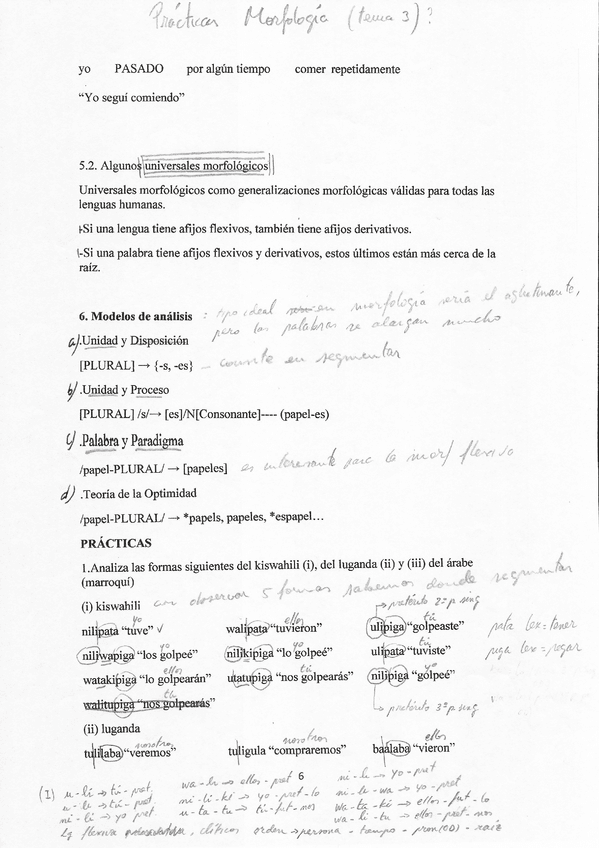 Prácticas Morfología (tema 3)?
yo PASADO por algún tiempo comer repetidamente
“Yo seguí comiendo”
5.2. Algunos universales morfológicos
Universales morfológicos como generalizaciones morfológicas válidas para todas las
lenguas humanas.
-Si una lengua tiene afijos flexivos, también tiene afijos derivativos.
-Si una palabra tiene afijos flexivos y derivativos, estos últimos están más cerca de la
raíz.
6. Modelos de análisis : tipo ideal en morfología sería el aglutinante,
pero las palabras se alargan mucho
a) .Unidad y Disposición
[PLURAL] → {-s, -es} – consiste en segmentar
b) .Unidad y Proceso
[PLURAL] /s/→ [es]/N[Consonante]---- (papel-es)
c) .Palabra y Paradigma
/papel-PLURAL/ → [papeles] es interesante para la morf flexiva
d) .Teoría de la Optimidad
/papel-PLURAL/ → *papels, papeles, *espapel…
PRÁCTICAS
1.Analiza las formas siguientes del kiswahili (i), del luganda (ii) y (iii) del árabe
(marroquí) con observar 5 formas sabemos donde segmentar
(i) kiswahili → pretérito 2ª p sing
yo ellos tú
nilipata “tuve” ✓ walipata “tuvieron” ulipiga “golpeaste” pata lex=tener
yo yo tú
niliwapiga “los golpeé” nilikipiga “lo golpeé” ulipata “tuviste” piga lex=pegar
ellos tú yo
watakipiga “lo golpearán” utatupiga “nos golpearás” nilipiga “golpeé”
tú
walitupiga “nos golpearás” → pretérito 3ª p sing
(ii) luganda
nosotros nosotros ellos
tulilaba “veremos” tuligula “compraremos” baalaba “vieron”
6
(I) u-li → tú-pret. wa-li → ellos-pret ni-li → yo-pret
u-li → tú-pret. ni-li-ki → yo-pret-lo ni-li-wa → yo-pret
ni-li → yo pret. u-ta-tu → tú-fut-nos wa-ta-ki → ellos-fut-lo
wa-li-tu → ellos-pret-nos
↳ flexiva clíticos orden → persona - tiempo - pron(OD) - raíz